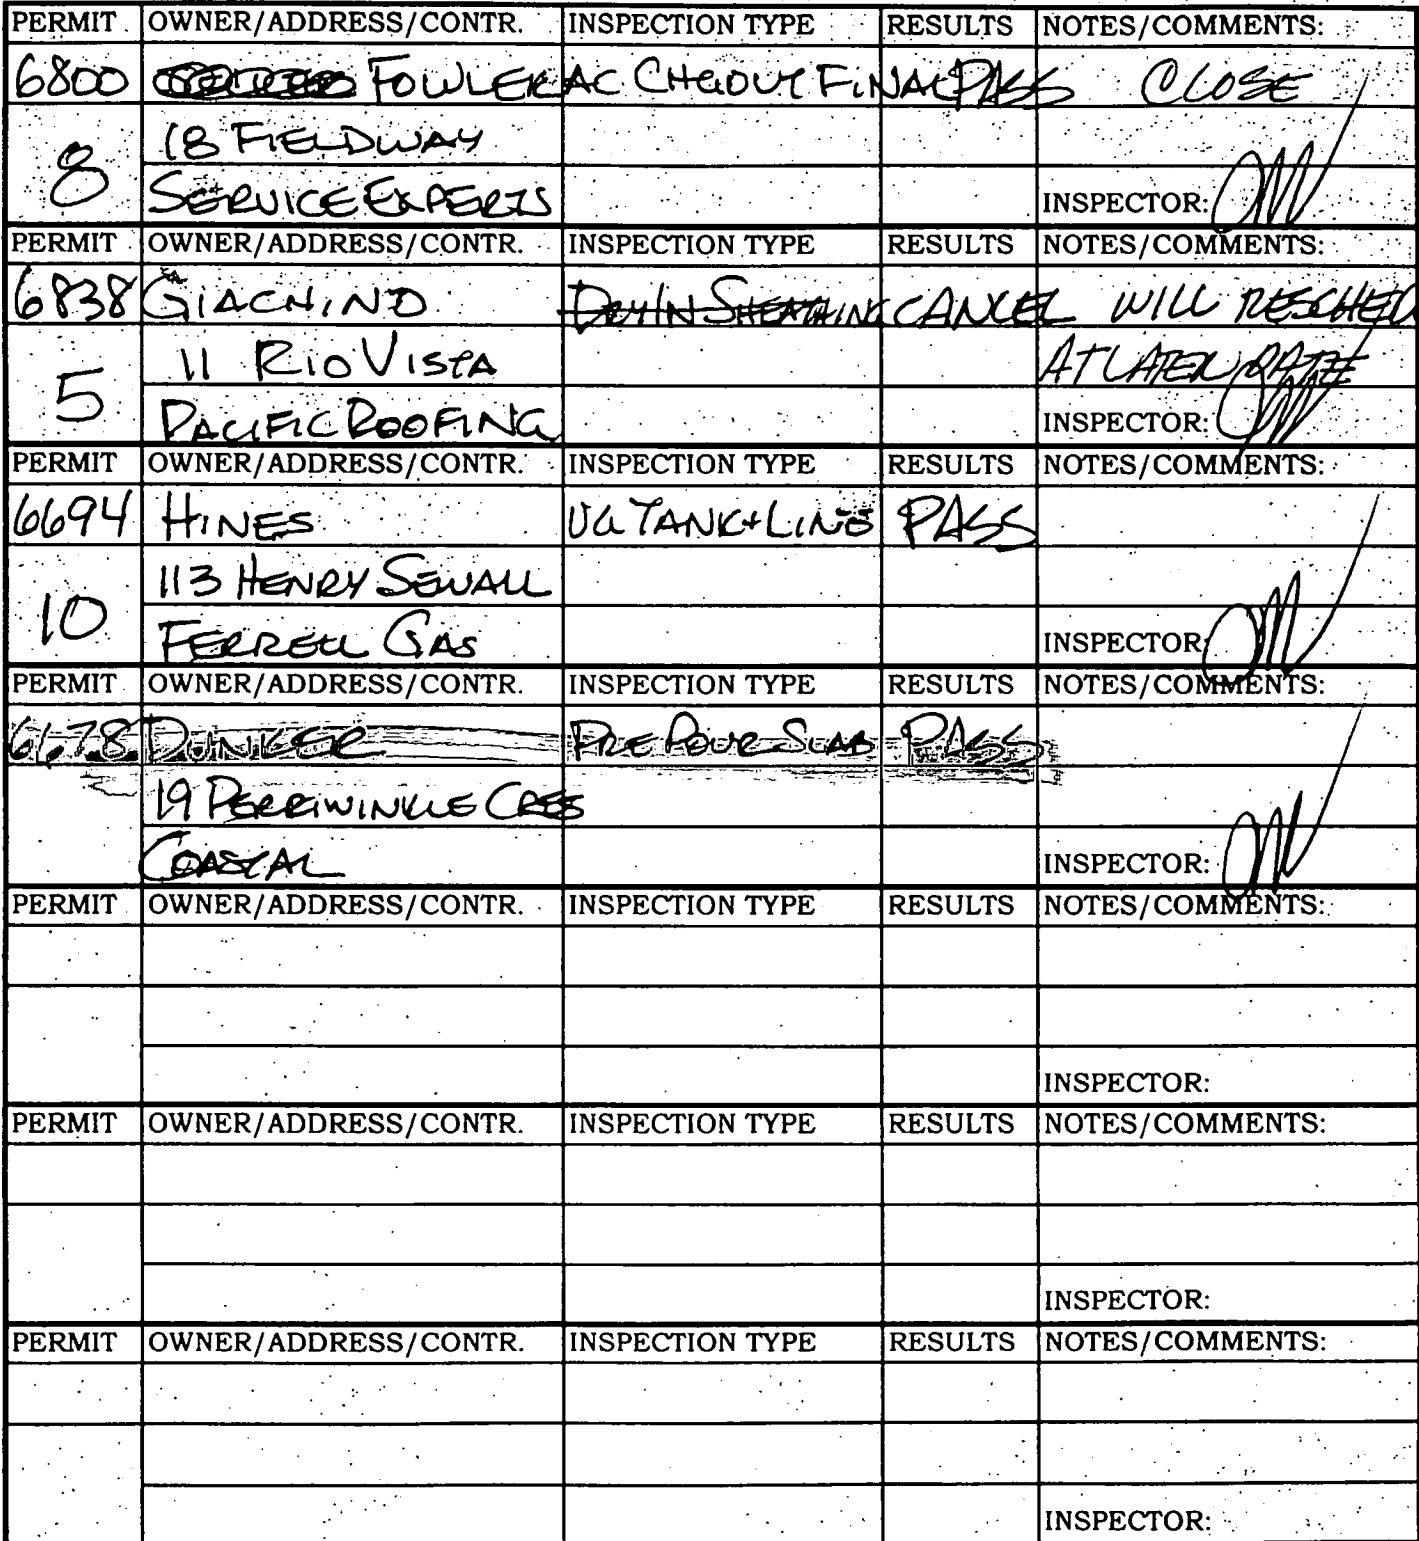 PERMIT OWNER/ADDRESS/CONTR. INSPECTION TYPE RESULTS NOTES/COMMENTS:
6800 FOWLER AC CHGOUT FINAL PASS CLOSE
18 FIELDWAY
8
SERVICE EXPERTS INSPECTOR:
PERMIT OWNER/ADDRESS/CONTR. INSPECTION TYPE RESULTS NOTES/COMMENTS:
6838 GIACHINO DRY IN SHEATHING CANCEL WILL RESCHED
11 RIO VISTA AT LATER DATE
5
PACIFIC ROOFING INSPECTOR:
PERMIT OWNER/ADDRESS/CONTR. INSPECTION TYPE RESULTS NOTES/COMMENTS:
6694 HINES UG TANK + LINE PASS
113 HENRY SEWALL
10
FERRELL GAS INSPECTOR:
PERMIT OWNER/ADDRESS/CONTR. INSPECTION TYPE RESULTS NOTES/COMMENTS:
6678 DUNKER PRE POUR SLAB PASS
19 PERRIWINKLE CRES
COASTAL INSPECTOR:
PERMIT OWNER/ADDRESS/CONTR. INSPECTION TYPE RESULTS NOTES/COMMENTS:
INSPECTOR:
PERMIT OWNER/ADDRESS/CONTR. INSPECTION TYPE RESULTS NOTES/COMMENTS:
INSPECTOR:
PERMIT OWNER/ADDRESS/CONTR. INSPECTION TYPE RESULTS NOTES/COMMENTS:
INSPECTOR: